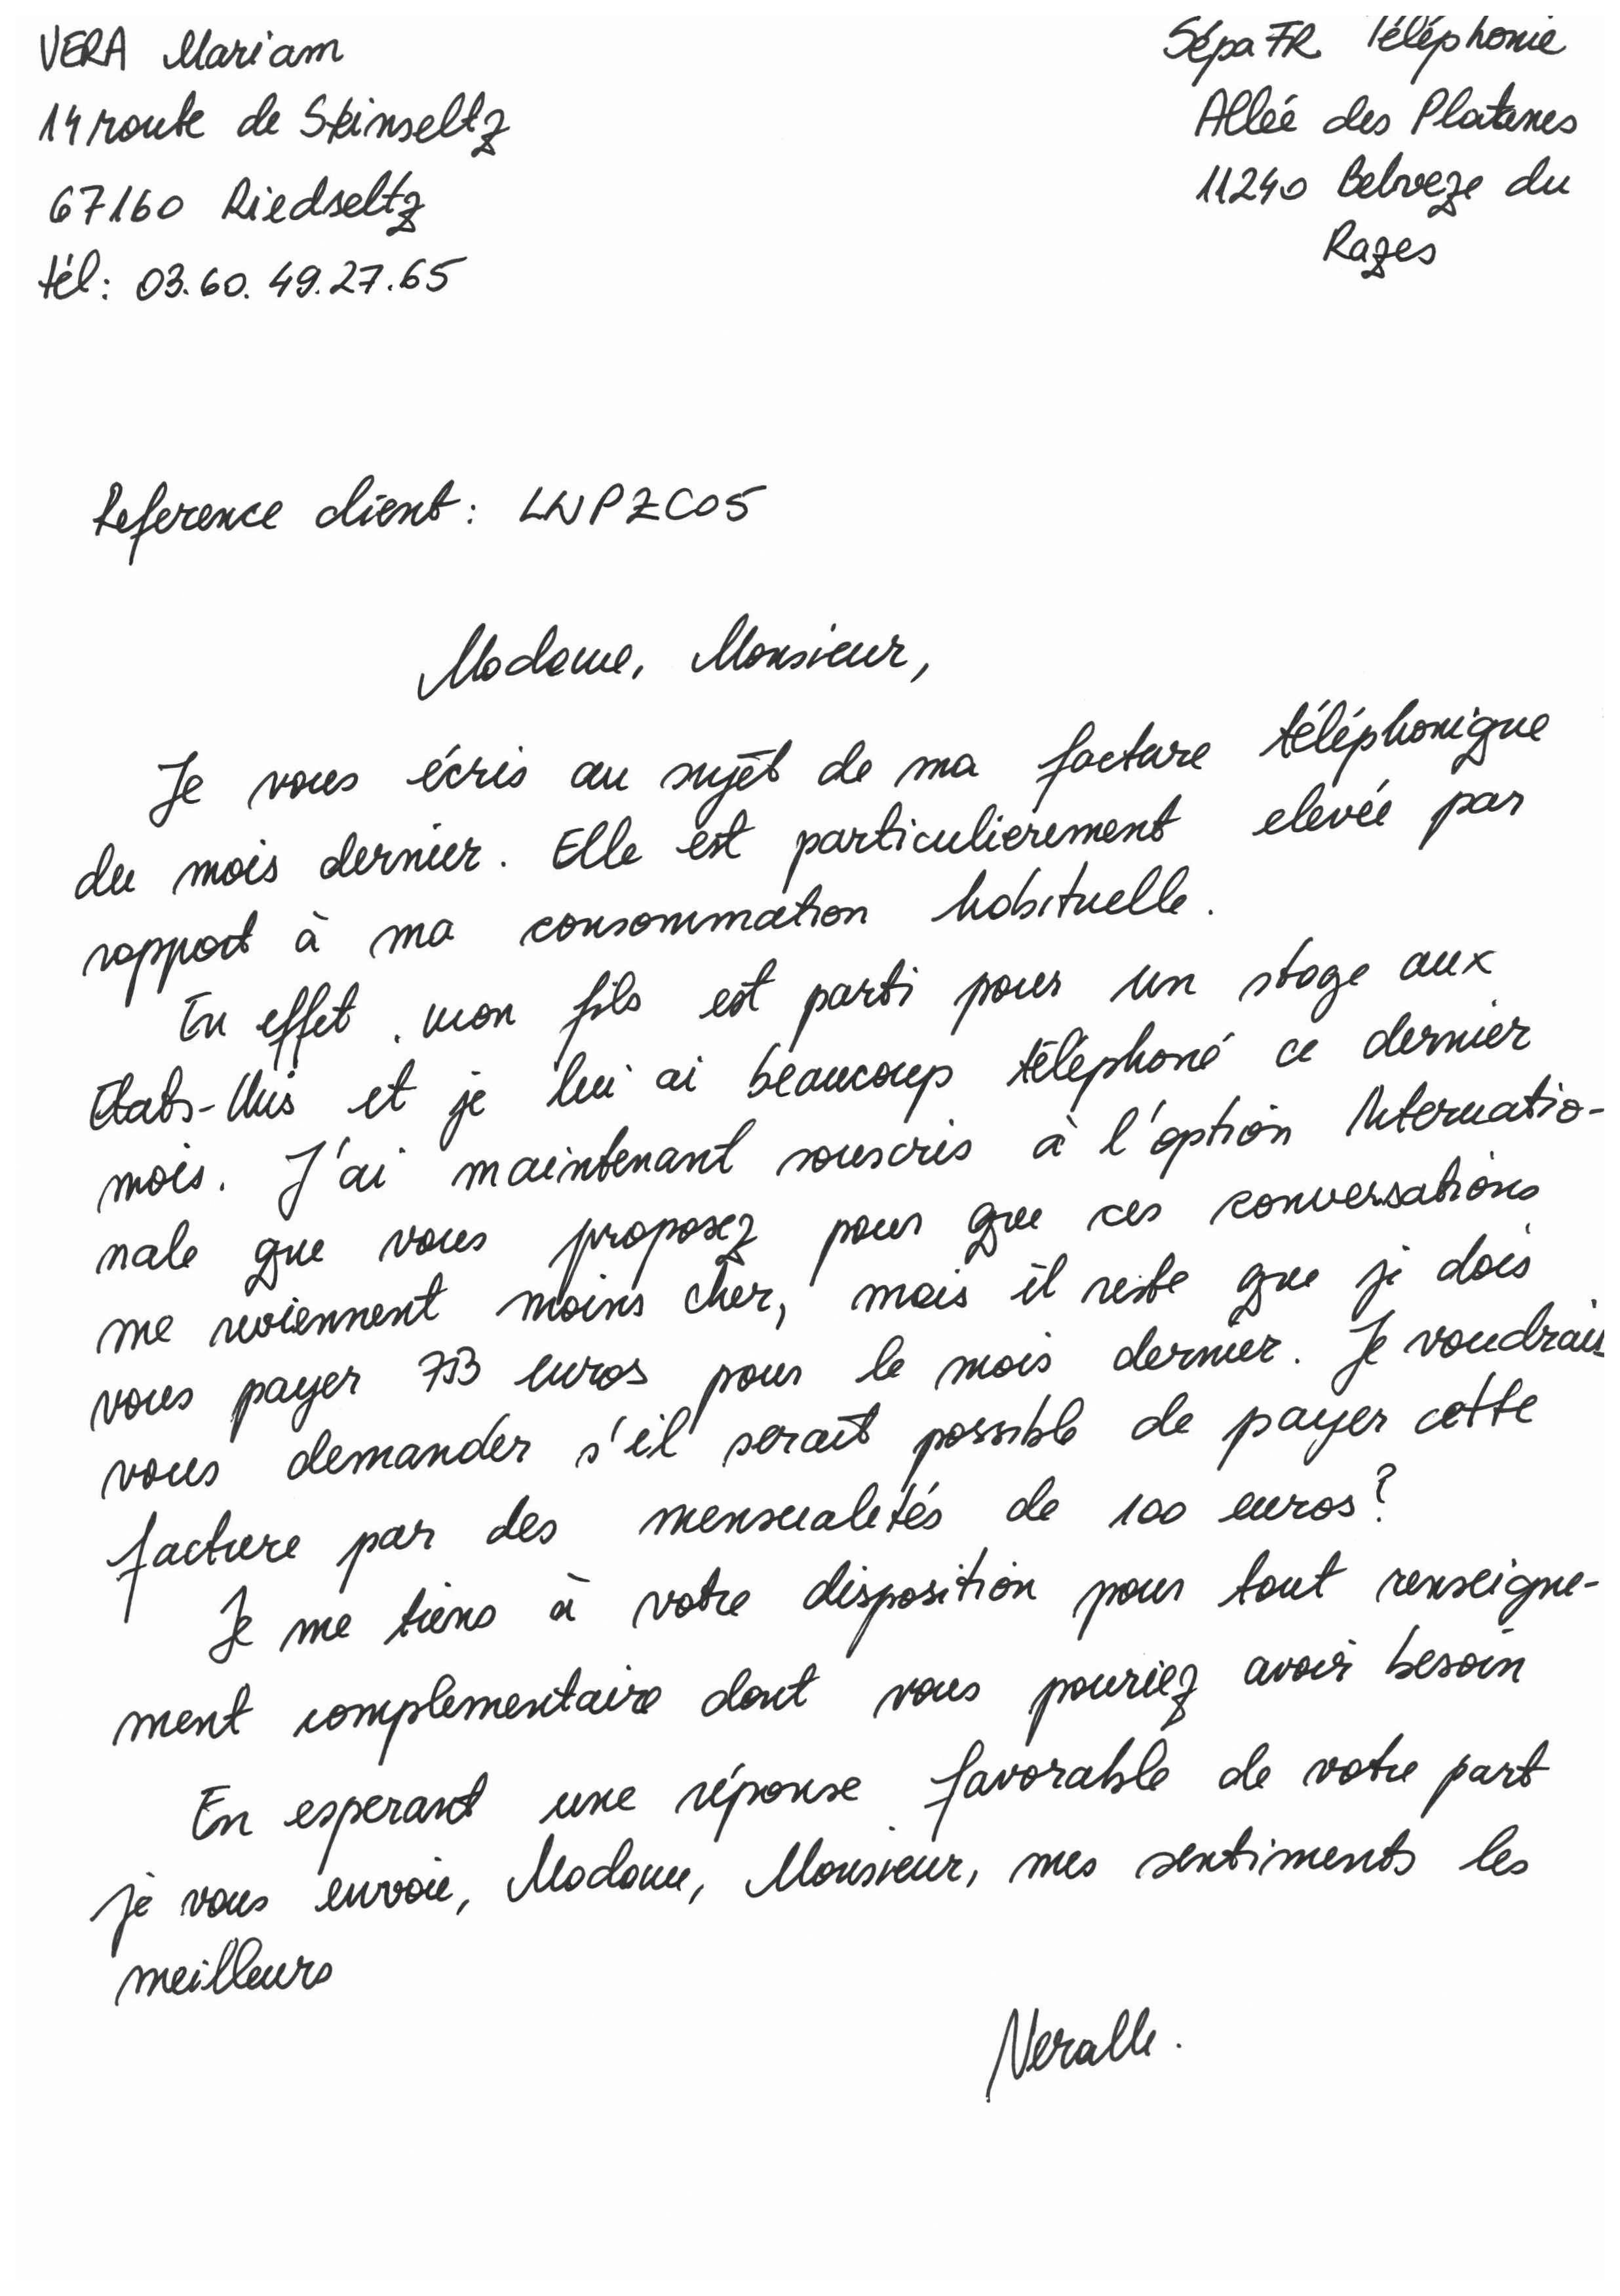 VERA Mariam
14 route de Steinseltz
67160 Riedseltz
tél: 03.60.49.27.65
SépaFR Téléphonie
Alléé des Platanes
11240 Belveze du
Razes
Reference client: LWPZC05
Madame, Monsieur,
Je vous écris au sujet de ma facture téléphonique
du mois dernier. Elle est particulierement elevée par
rapport à ma consommation habituelle.
En effet, mon fils est parti pour un stage aux
Etats-Unis et je lui ai beaucoup téléphoné ce dernier
mois. J'ai maintenant souscris à l'option Internatio-
nale que vous proposez pour que ces conversations
me reviennent moins cher, mais il reste que je dois
vous payer euros pour le mois dernier. Je voudrais
vous demander s'il serait possible de payer cette
facture par des mensualités de 100 euros?
Je me tiens à votre disposition pour tout renseigne-
ment complementaire dont vous pouriez avoir besoin
En esperant une réponse favorable de votre part
je vous envoie, Madame, Monsieur, mes sentiments les
meilleurs